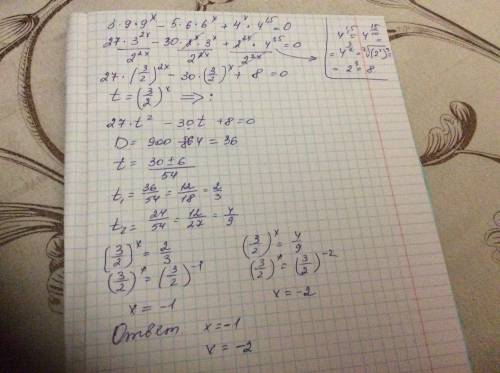 3·9·9^x − 5·6·6^x + 4^x · 4^1,5 = 0
27·3^2x/2^2x − 30·2^x·3^x/2^2x + 2^2x·4^1,5/2^2x = 0
27·(3/2)^2x − 30·(3/2)^x + 8 = 0
t = (3/2)^x ⟹ :
27·t² − 30t + 8 = 0
D = 900 − 864 = 36
t = 30 ± 6 / 54
t₁ = 36/54 = 12/18 = 2/3
t₂ = 24/54 = 12/27 = 4/9
(3/2)^x = 2/3
(3/2)^x = (3/2)^−1
x = −1
(3/2)^x = 4/9
(3/2)^x = (3/2)^−2
x = −2
Ответ x = −1
x = −2
4^1,5 = 4^15/10 =
= 2³ = 8